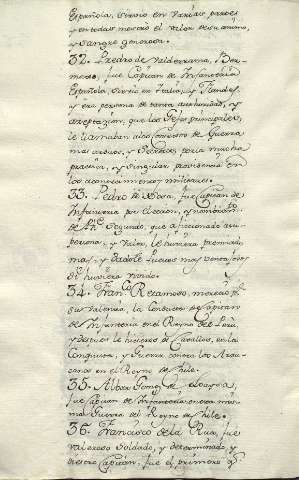 Española, sirvio en varias partes
y en todas mostro el valor de su animo,
y sangre generosa.
32. Pedro de Valderrama, Ber-
mejo, fue Capitan de Infanteria
Española, sirvio en Italia, y Flandes,
y era persona de tanta authoridad, y
aceptazion, que los Gefes principales,
le llamaban a los consejos de Guerra
mas arduos, y secretos, tenia mucha
practica, y singular providencia en
los acontecimientos militares.
33. Pedro de Mora, fue Capitan de
Infanteria por eleccion, y nominazn.
de Phe. Segundo, que aficionado a su
persona, y valor, le huviera premiado
mas, y dadole puestos mas ventajosos
si huviera vivido.
34. Franco. Recamoso, merecio pr.
sus valentias, la Conducta de Capitan
de Infanteria en el Reyno del Peru,
y despues le hicieron de Cavallos, en la
Conquista, y Guerra contra los Arau-
canos en el Reyno de Chile.
35. Alvaro Gomez de
fue Capitan de Infanteria en esta mis-
ma Guerra del Reyno de Chile.
36. Francisco de la Rua, fue
valeroso soldado, y determinado, y
diestro Capitan, fue el primero q